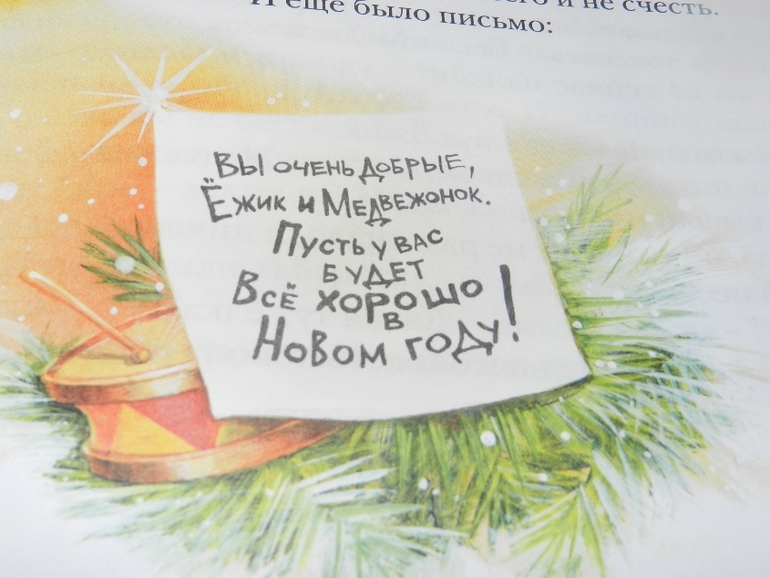 и не счесть.
И ещё было письмо:
Вы очень добрые,
Ёжик и Медвежонок.
Пусть у вас
будет
Всё хорошо
в
Новом году!